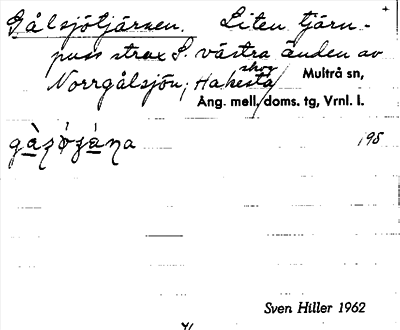 Gålsjötjärnen. Liten tjärn-
puss strax S. västra änden av
Norrgålsjön; Hakesta skog
Multrå sn,
Ång. mell. doms. tg, Vrnl. l.
198
Sven Hiller 1962